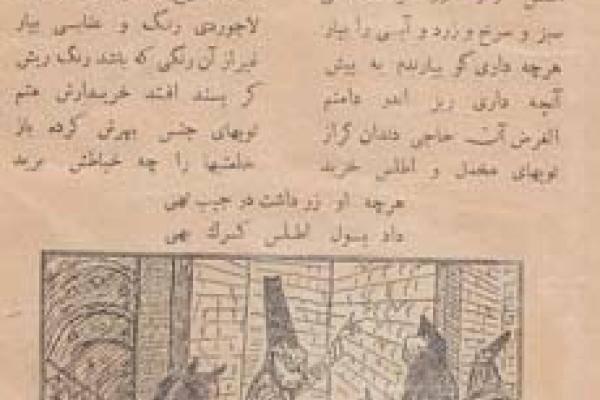 سبز و سرخ و زرد و آبی را بیار لاجوردی رنگ و عنابی بیار
هرچه داری کو بیارندم به پیش غیر از آن رنگی که باشد رنگ ریش
آنچه داری ریز اندر دامنم گر پسند افتد خریدارش منم
الغرض آن حاجی دندان گراز توپهای جنس بهرش کرده باز
توپهای مخمل و اطلس خرید خلعتها را چه خیاطش برید
هرچه او زر داشت در جیب تهی
داد بپول اطلس کرك بهی